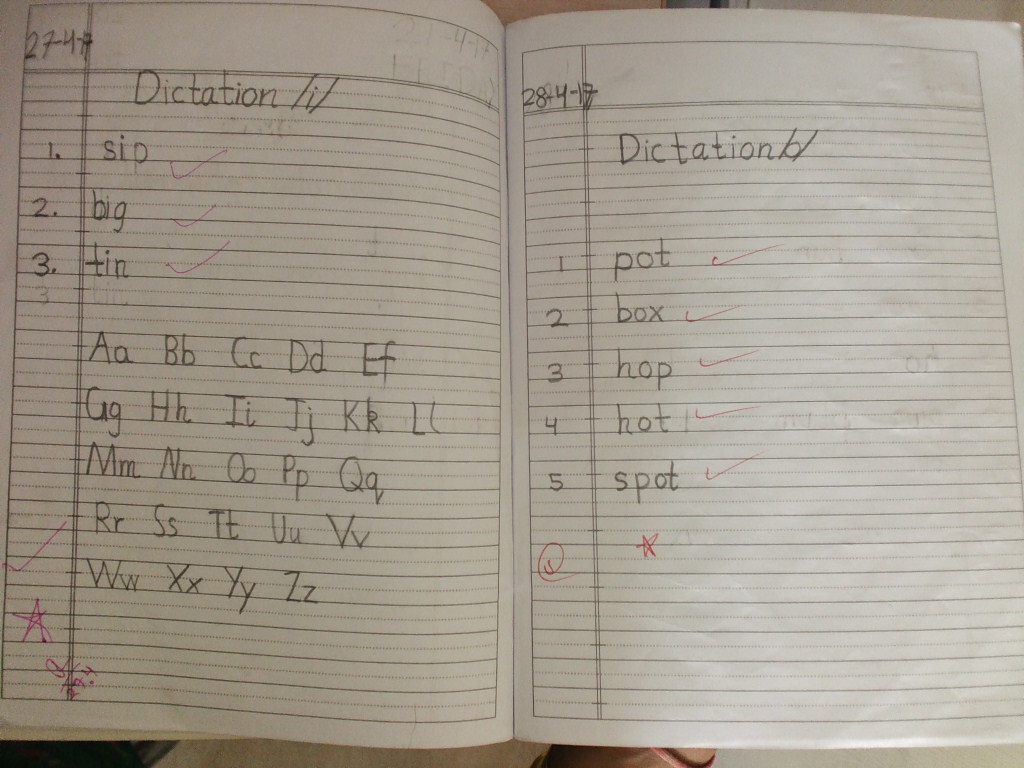 27-4-17
Dictation /i/
1. sip
2. big
3. tin
3 tin
Aa Bb Cc Dd Ef
Gg Hh Ii Jj Kk Ll
Mm Nn Oo Pp Qq
Rr Ss Tt Uu Vv
Ww Xx Yy Zz
28-4-17
Dictation /o/
1 pot
2 box
3 hop
4 hot
5 spot